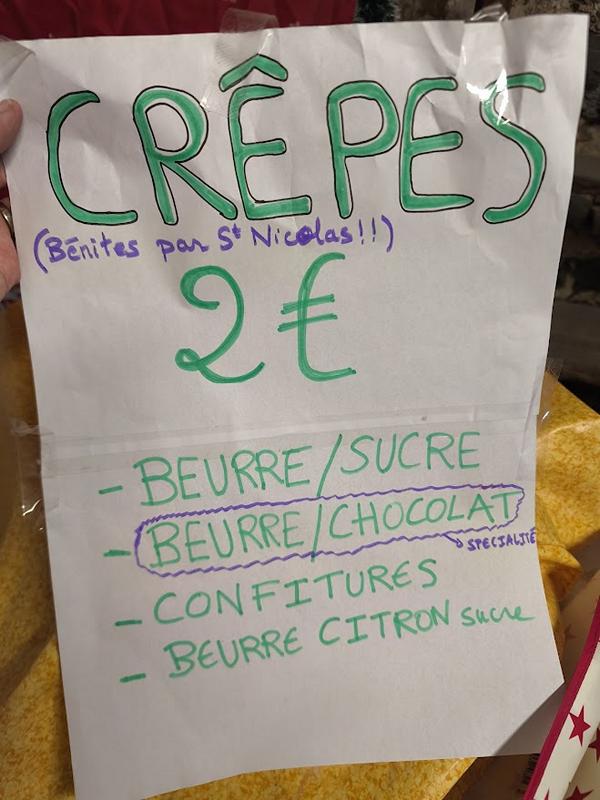 CRÊPES
(Bénites par St Nicolas!!)
2 €
- BEURRE/SUCRE
- BEURRE/CHOCOLAT
SPECIALITÉ
- CONFITURES
- BEURRE CITRON sucre